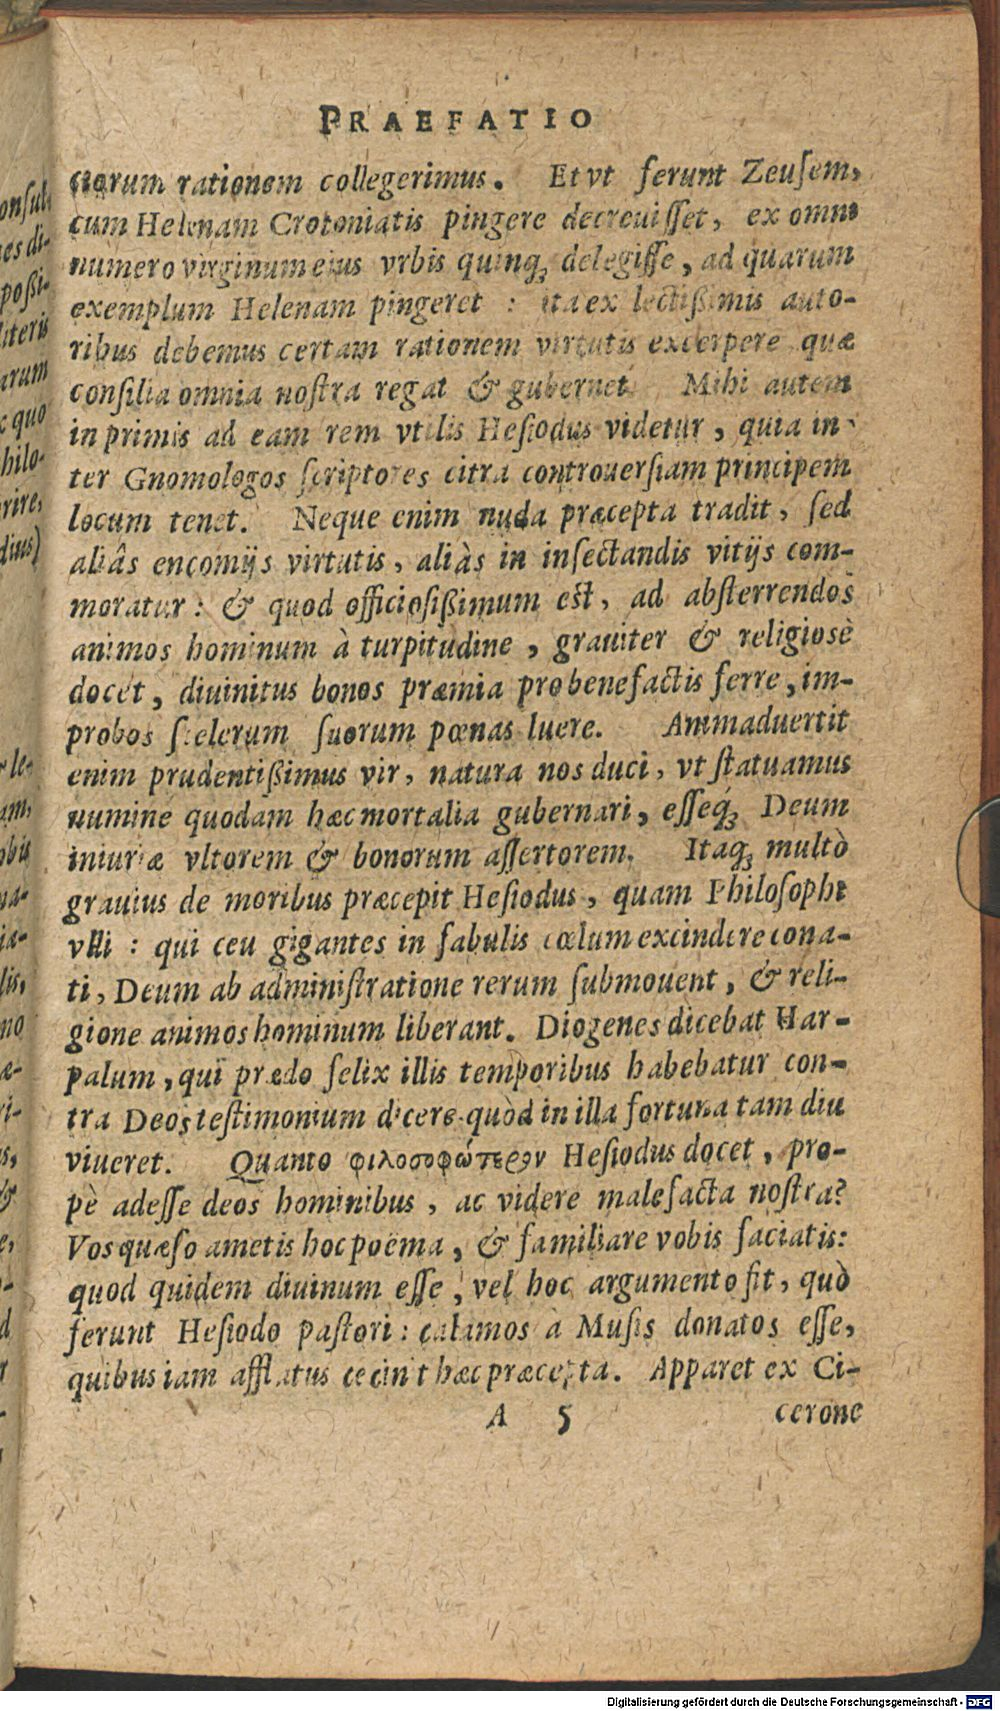 PRAEFATIO
ctorum rationem collegerimus. Et vt ferunt Zeusem,
cum Helenam Crotoniatis pingere decreuisset, ex omni
numero virginum eius vrbis quinqꝫ delegisse, ad quarum
exemplum Helenam pingeret : ita ex lectißimis auto-
ribus debemus certam rationem virtutis excerpere quæ
consilia omnia nostra regat & gubernet. Mihi autem
inprimis ad eam rem vtilis Hesiodus videtur, quia in-
ter Gnomologos scriptores citra controuersiam principem
locum tenet. Neque enim nuda præcepta tradit, sed
aliâs encomijs virtutis, aliàs in insectandis vitijs com-
moratur : & quod officiosißimum est, ad absterrendos
animos hominum à turpitudine, grauiter & religiosè
docet, diuinitus bonos præmia pro benefactis ferre, im-
probos scelerum suorum pœnas luere. Animaduertit
enim prudentißimus vir, natura nos duci, vt statuamus
numine quodam hæc mortalia gubernari, esseqꝫ́ Deum
iniuriæ vltorem & bonorum assertorem. Itaqꝫ multò
grauius de moribus præcepit Hesiodus, quam Philosophi
vlli : qui ceu gigantes in fabulis cœlum excindere cona-
ti, Deum ab administratione rerum submouent, & reli-
gione animos hominum liberant. Diogenes dicebat Har-
palum, qui prædo felix illis temporibus habebatur con-
tra Deos testimonium dicere quòd in illa fortuna tam diu
viueret. Quanto φιλοσοφώτερον Hesiodus docet, pro-
pè adesse deos hominibus, ac videre malefacta nostra?
Vos quæso ametis hoc poema, & familiare vobis faciatis:
quod quidem diuinum esse, vel hoc argumento sit, quò
ferunt Hesiodo pastori : calamos à Musis donatos esse,
quibus iam afflatus cecinit hæc præcepta. Apparet ex Ci-
A 5 cerone
onsul-
es di-
poßi-
literis
arum
c quo
hilo-
rire,
dius)
le-
am,
obis
na-
ia-
lis,
no
æ-
ri-
s,
&
e,
-
d
r
-
Digitalisierung gefördert durch die Deutsche Forschungsgemeinschaft - DFG